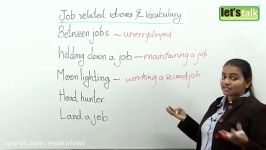 Job related idioms & Vocabulary
let's talk
Between jobs – unemployed
Holding down a job – maintaining a job
Moon lighting – working a second job
Head hunter
Land a job